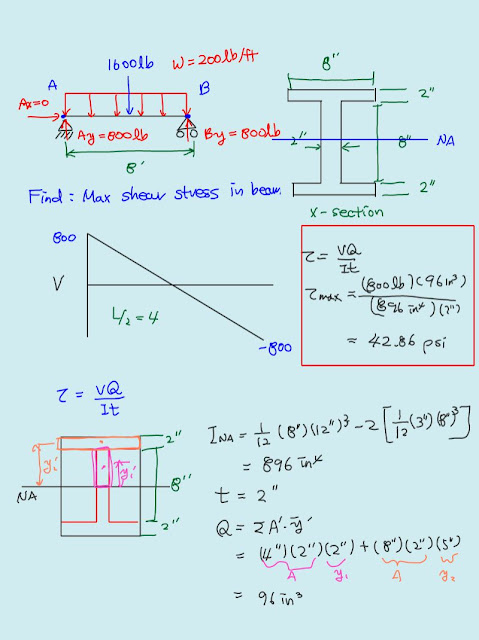 1600lb W=200lb/ft
A B
Ax=0
Ay=800lb By=800lb
8'
8"
2"
2" 8" NA
2"
x-section
Find: Max shear stress in beam
800
V
L/2 = 4
-800
τ = VQ/It
τmax = (800lb)(96in³)/(896 in⁴)(2")
= 42.86 psi
τ = VQ/It
2"
y₂'
y₁'
NA 8"
2"
I_NA = 1/12 (8")(12")³ - 2[1/12 (3")(8")³]
= 896 in⁴
t = 2"
Q = ΣA'·ȳ'
= (4")(2")(2") + (8")(2")(5")
A y₁ A y₂
= 96in³